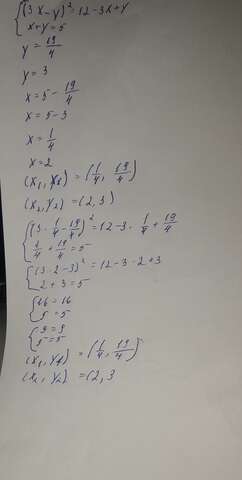 {(3x-y)²=12-3x+y
x+y=5
y=19/4
y=3
x=5-19/4
x=5-3
x=1/4
x=2
(x₁, y₁) = (1/4, 19/4)
(x₂, y₂) = (2, 3)
{(3·1/4-19/4)²=12-3·1/4+19/4
1/4+19/4=5
{(3·2-3)²=12-3·2+3
2+3=5
{16=16
5=5
{9=9
5=5
(x₁, y₁) = (1/4, 19/4)
(x₂, y₂) = (2, 3